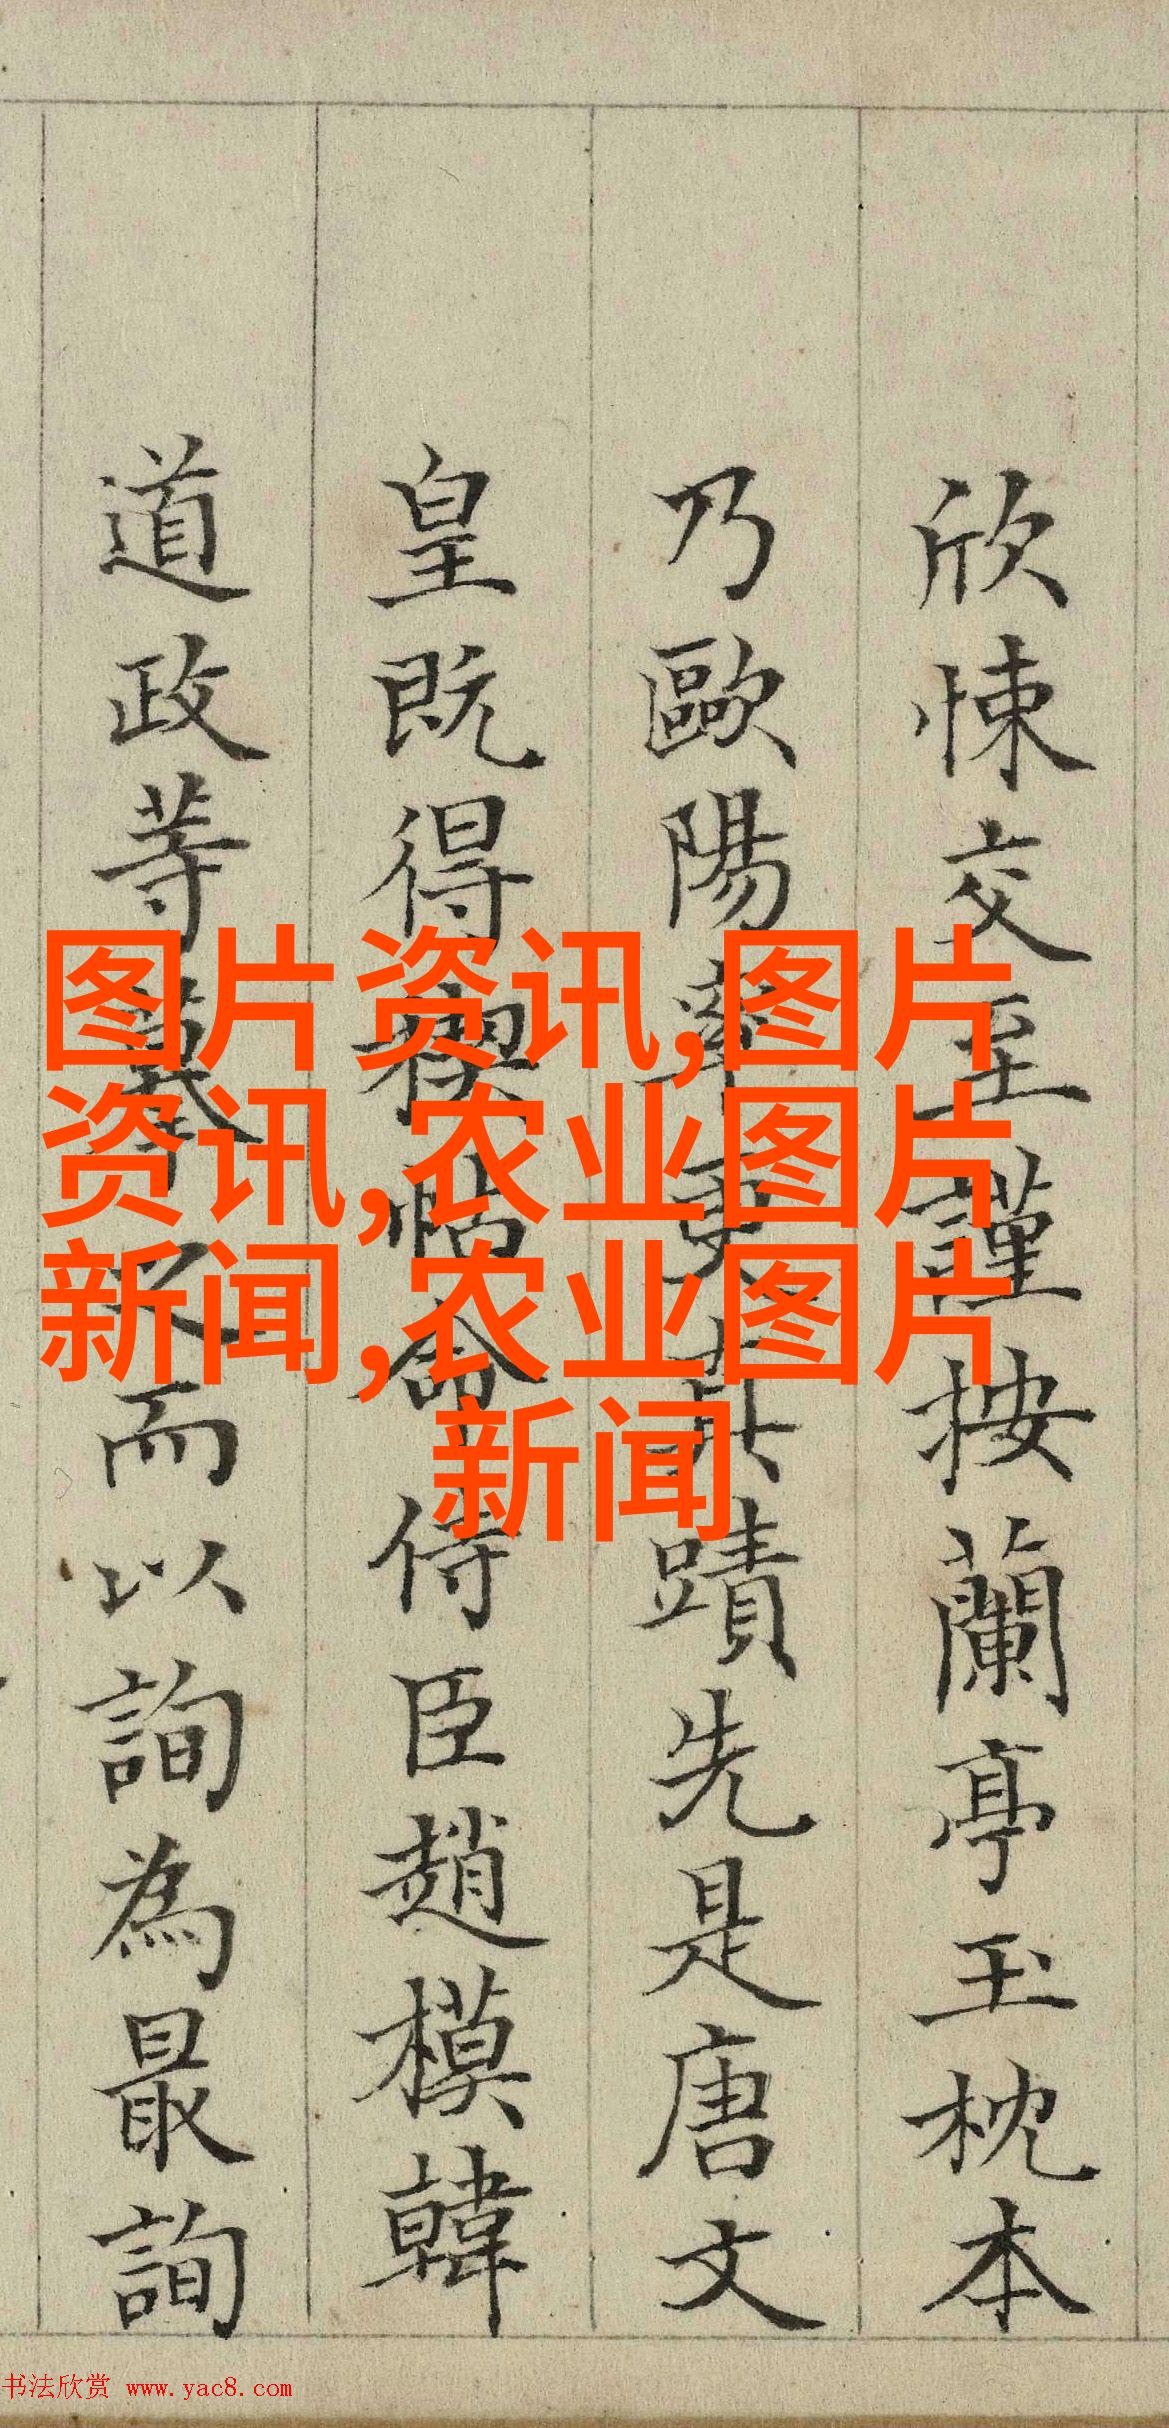 欣悚交至謹按蘭亭玉枕本
乃歐陽率更真蹟先是唐文
皇既得禊帖命侍臣趙模韓
道政等摹之而以詢為最詢
图片资讯,图片
资讯,农业图片
新闻,农业图片
新闻
书法欣赏 www.yac8.com